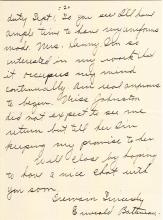 -2-
duty Sept. 1. So you see I'll have
ample time to have my uniforms
made. Mrs. Henry I'm so
interested in my work that
it occupies my mind
continually. Am real anxious
to begin. Miss Johnston
did not expect to see me
return but tell her I'm
keeping my promise to her.
I will close by hoping
to have a nice chat with
you soon.
Sincerely